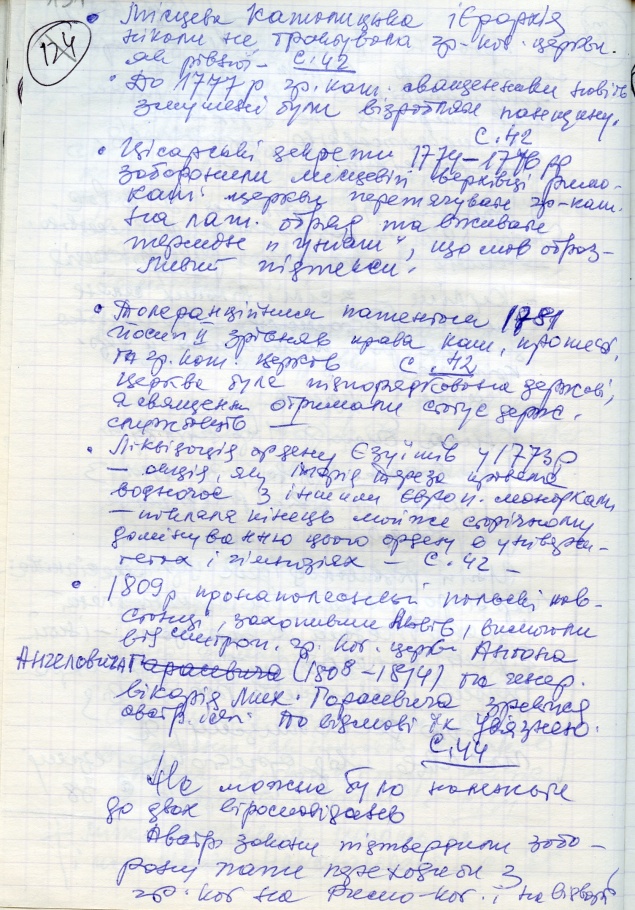 124
• Місцева Католицька ієрархія
ніколи не трактувала гр-кат. церкви.
як рівної – с. 42
• До 1777 р гр. кат. священники навіть
змушені були відробляти панщину.
с. 42
• Цісарські декрети 1774–1776 рр
забороняли місцевій верхівці римо-
кат. церкви перетягувати гр-кат.
на лат. обряд та вживати
термін "уніат", що мав образ-
ливий підтекст.
• Толеранційним патентом 1781
Йосип II зрівняв права кат., протест,
та гр. кат. церков с. 42
Церква була підпорядкована державі,
а священ отримали статус держ.
службовців —
• Ліквідація ордену Єзуїтів у 1773 р
– акція, яку Марія Тереза провела
водночас з іншими європ. монархами
– поклала кінець майже сторічному
домінуванню цього ордену в універси-
тетах і гімназіях – с. 42 –
• 1809 р пронаполеонські польські пов-
станці, захопивши Львів, вимагали
від митроп. гр. кат. церкви Антона
Ангеловича Гарасевича (1808–1814) та генер.
вікарія Мих. Гарасевича зректися
австр. По відмові їх ув'язнено.
с. 44
Не можна було належати
до двох віросповідань
Австр закони підтвердили забо-
рону папи переходити з
гр-кат на римо-кат. і навідворіт